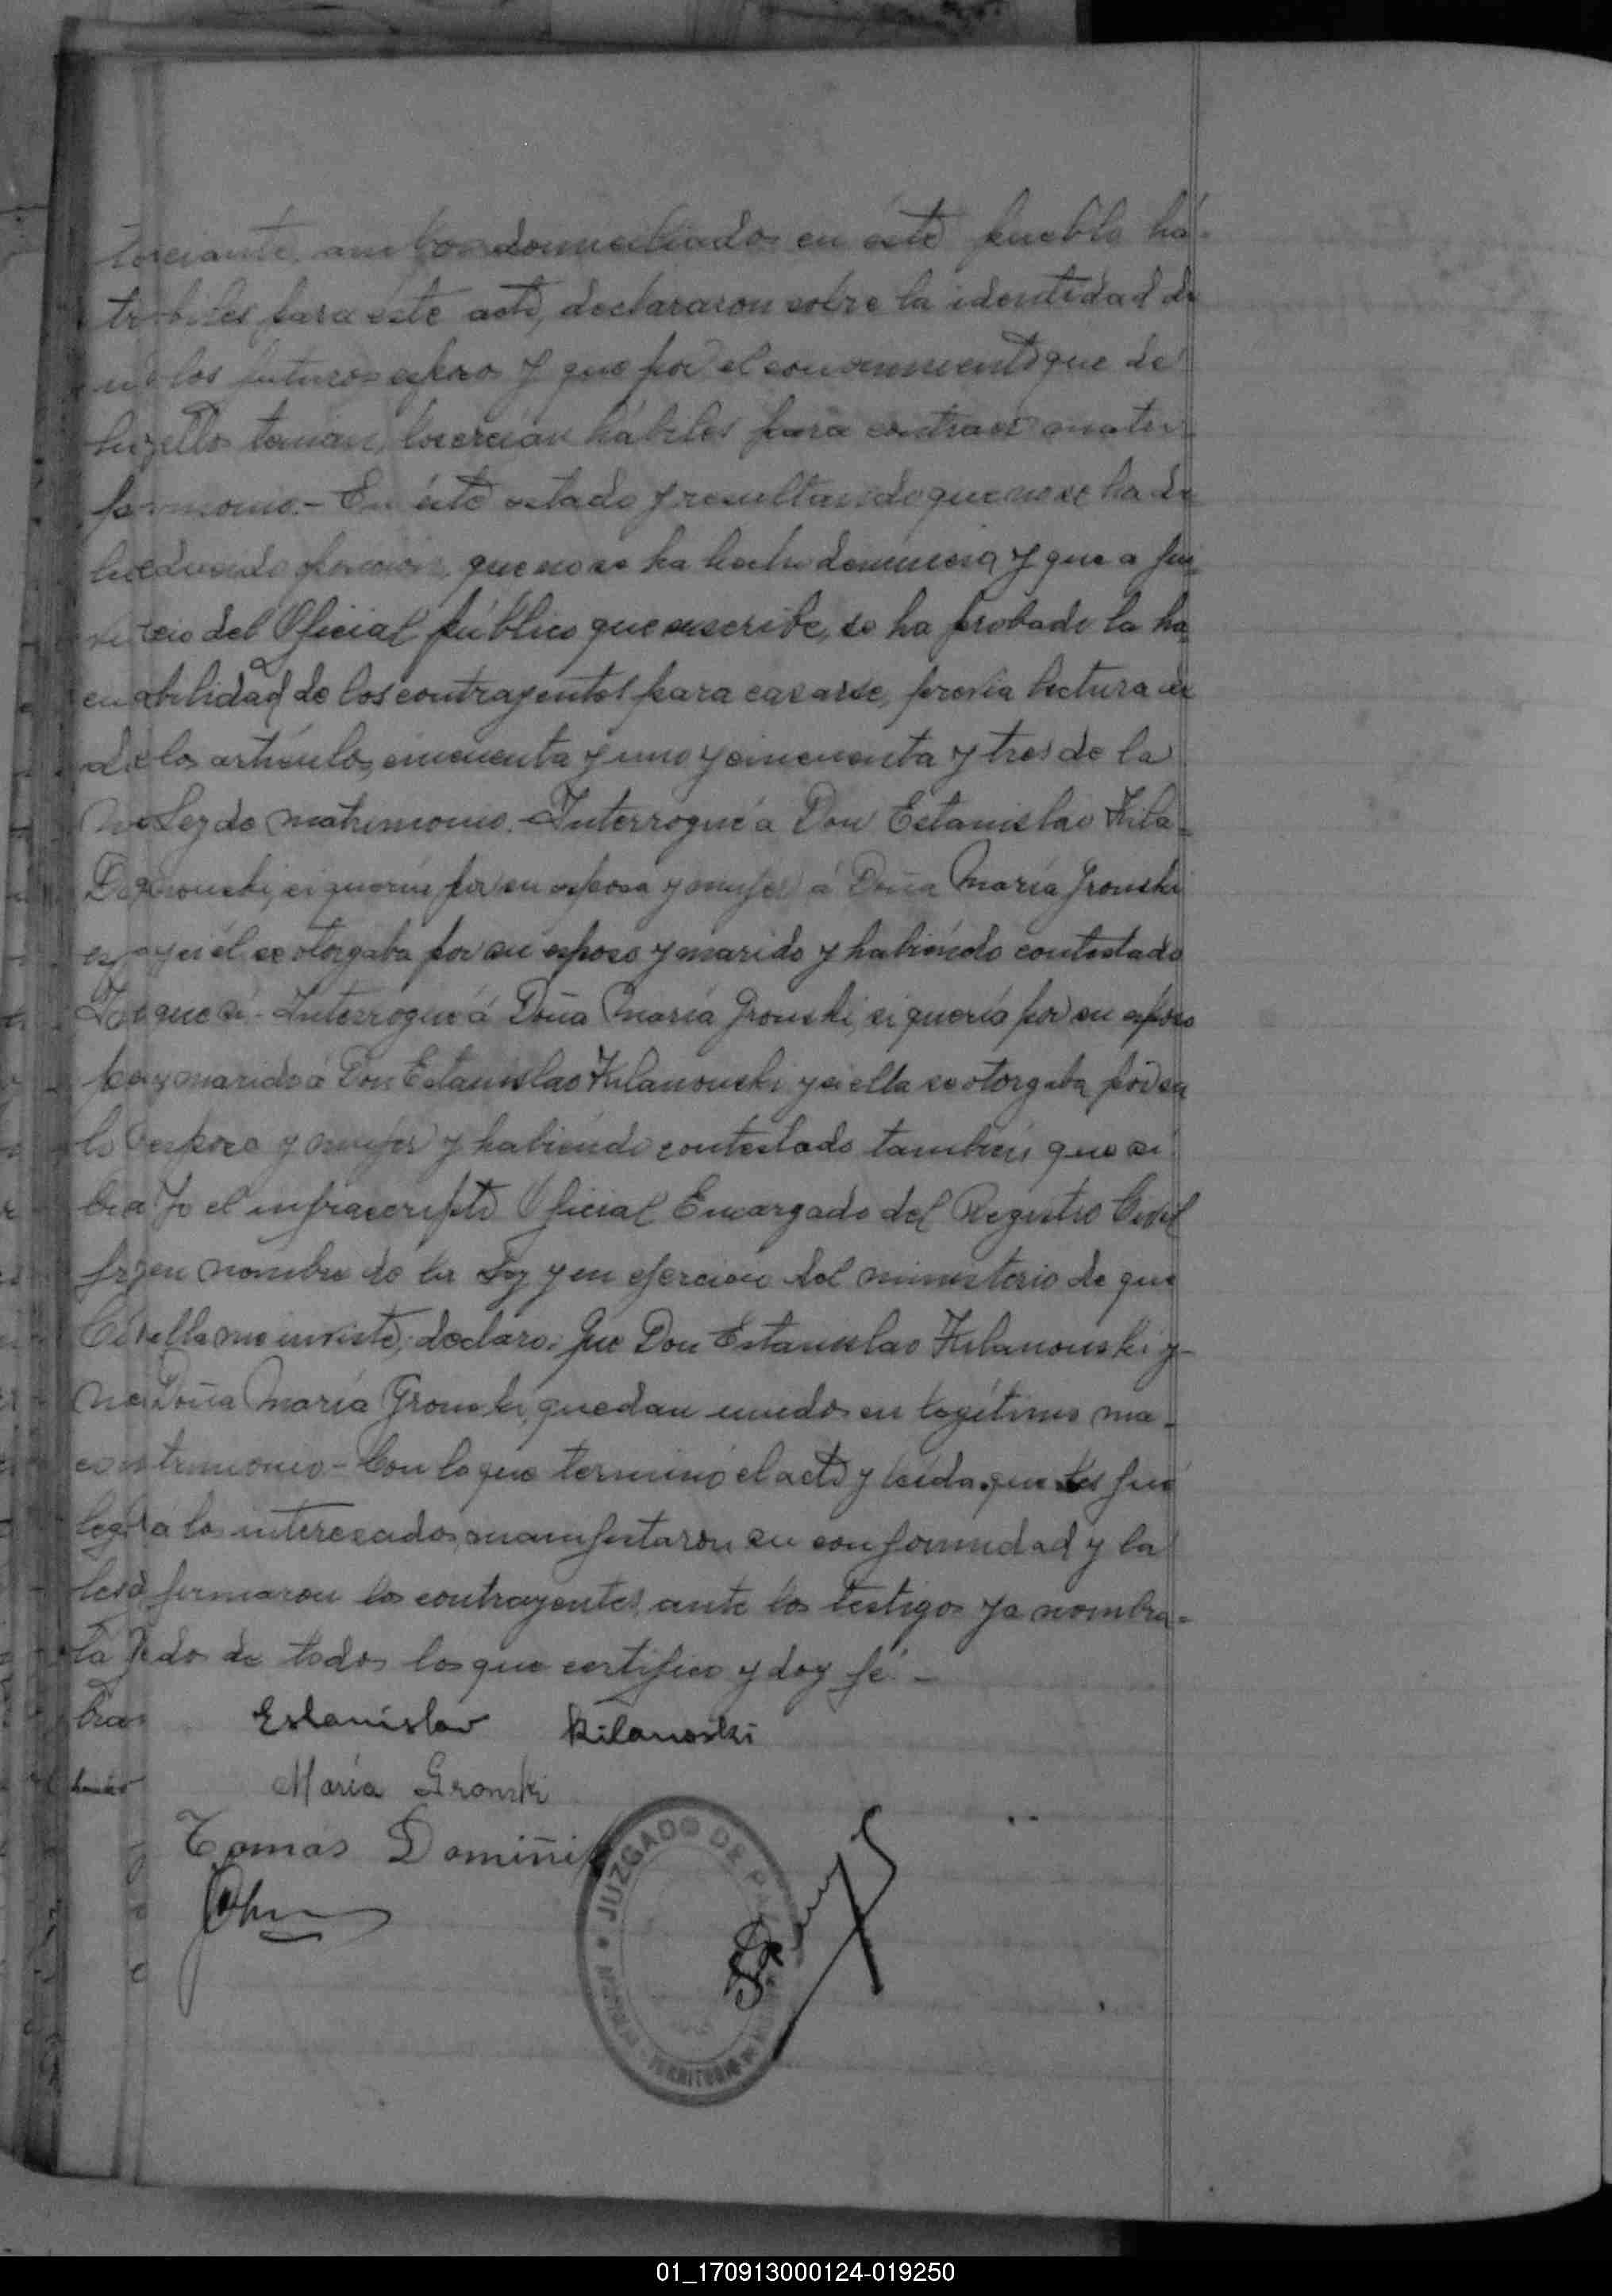 ambos domiciliados en éste pueblo há-
biles para éste acto, declararon sobre la identidad de
los futuros esposos y que por el conocimiento que de
ellos tenian, los creian hábiles para contraer matri-
monio.- En éste estado y resultando que no se ha de
ducido oposicion, que no se ha hecho denuncia y que a jui
cio del Oficial público que suscribe, se ha probado la ha
bilidad de los contrayentes para casarse, previa lectura de
los artículos cincuenta y uno y cincuenta y tres de la
Ley de matrimonio.- Interrogué á Don Estanislao Kila-
nouski, si queria por su esposa y mujer á Doña María Gronski
y si él se otorgaba por su esposo y marido y habiendo contestado
que si - Interrogué á Doña María Gronski, si quería por su esposo
y marido á Don Estanislao Kilanouski y si ella se otorgaba por su
esposa y mujer y habiendo contestado también que si
Yo el infrascripto Oficial Encargado del Registro Civil
en nombre de la Ley y en ejercicio del ministerio de que
ella me inviste; declaro: Que Don Estanislao Kilanouski y
Doña María Gronski, quedan unidos en legítimo ma-
trimonio - Con lo que terminó el acto y leida que les fué
á los interesados, manifestaron su conformidad y la
firmaron los contrayentes, ante los testigos ya nombra-
dos de todos los que certifico y doy fé -
Estanislav Kilanoski
María Gronski
Tomás
JUZGADO DE PAZ
TERRITORIO DE
01_170913000124-019250